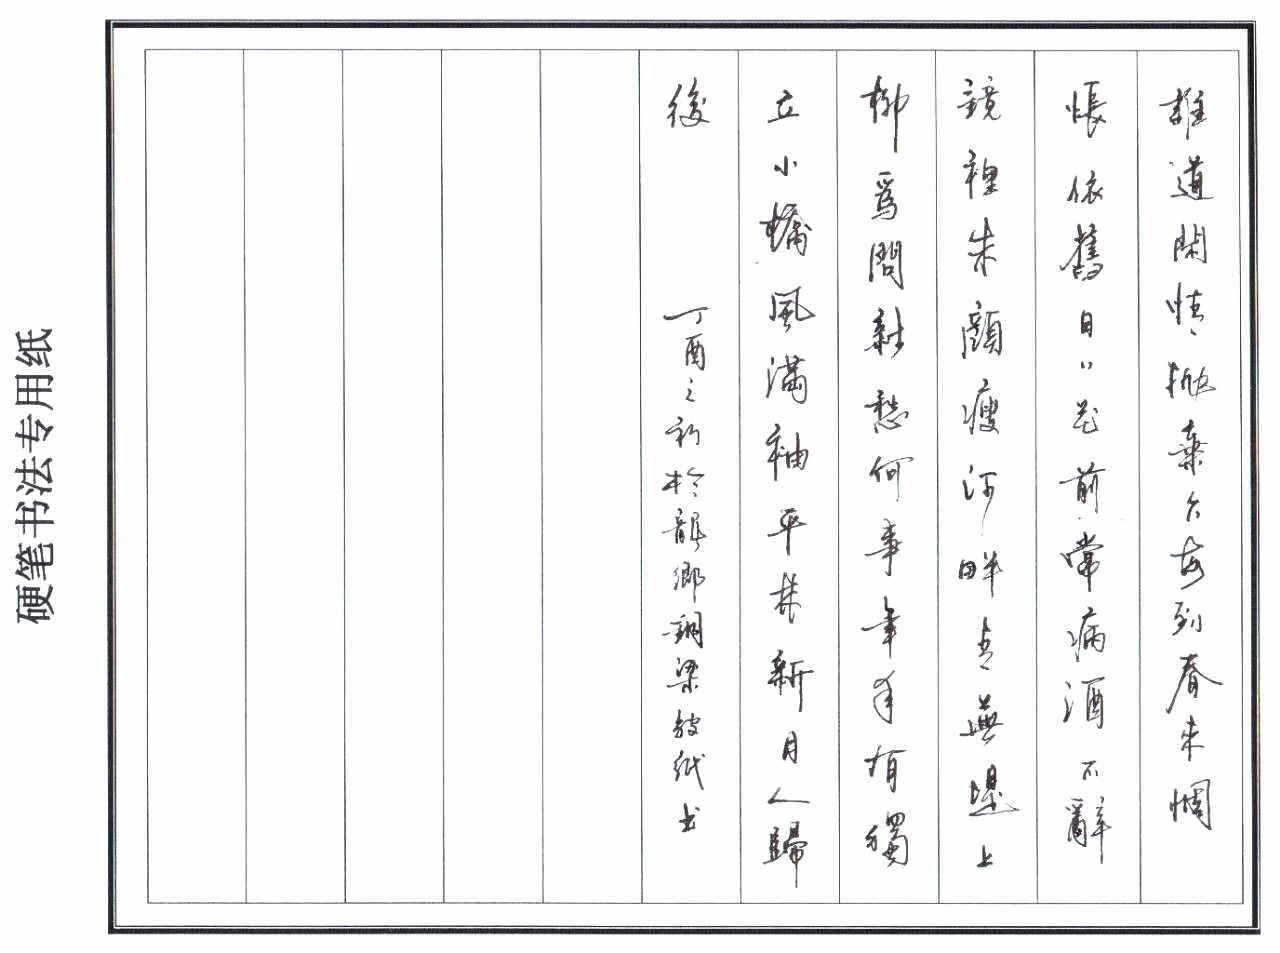 誰道閑情抛棄久每到春来惆
悵依舊日〃花前常病酒不辭
鏡裡朱顔瘦河畔青蕪堤上
柳爲問新愁何事年年有獨
立小橋風滿袖平林新月人歸
後 丁酉之初於龍鄉銅梁紙书
硬笔书法专用纸